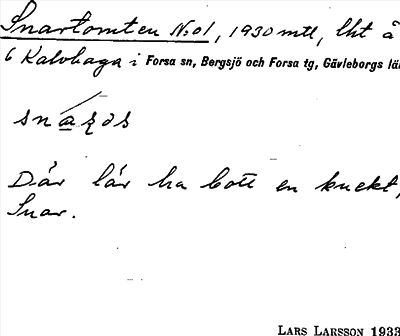 Snartomten N:o1, 1930 mtl, lht å
6 Kalvhaga i Forsa sn, Bergsjö och Forsa tg, Gävleborgs lä
Där lär ha bott en knekt,
Snar.
LARS LARSSON 1933